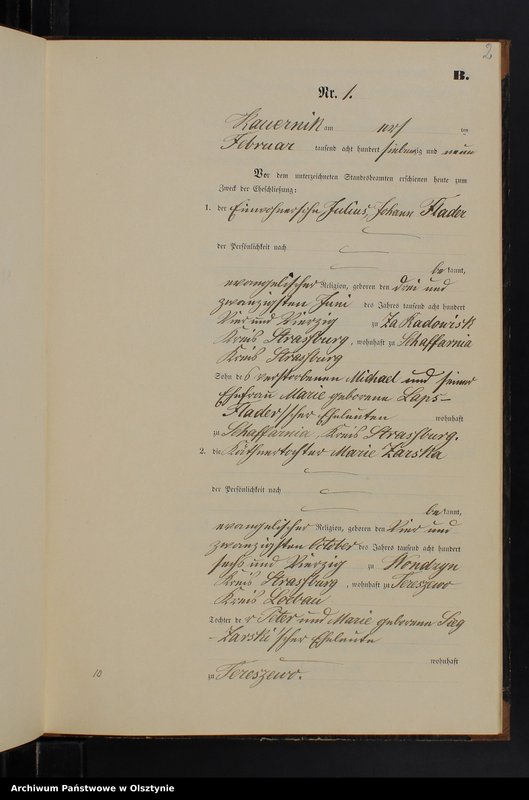 2
B.
Nr. 1.
Kauernik am ers ten
Februar tausend acht hundert siebenzig und neun
Vor dem unterzeichneten Standesbeamten erschienen heute zum
Zweck der Eheschließung:
1. der Einwohnersohn Julius, Johann Flader
der Persönlichkeit nach
be kannt,
evangelischer Religion, geboren den drei und
zwanzigsten Juni des Jahres tausend acht hundert
Vier und Vierzig zu Za Radowisk
Kreis Strassburg, wohnhaft zu Schaffarnia
Kreis Strassburg
Sohn des verstorbenen Michael und seiner
Ehefrau Marie geborene Laps-
Flader'scher Eheleuten wohnhaft
zu Schaffarnia, Kreis Strassburg.
2. die Käthnertochter Marie Zarska
der Persönlichkeit nach
be kannt,
evangelischer Religion, geboren den Vier und
zwanzigsten October des Jahres tausend acht hundert
sechs und Vierzig zu Wondzyn
Kreis Strassburg, wohnhaft zu Tereszewo
Kreis Loebau
Tochter der Peter und Marie geborene
Zarski'scher Eheleute
wohnhaft
zu Tereszewo.
10
Archiwum Państwowe w Olsztynie